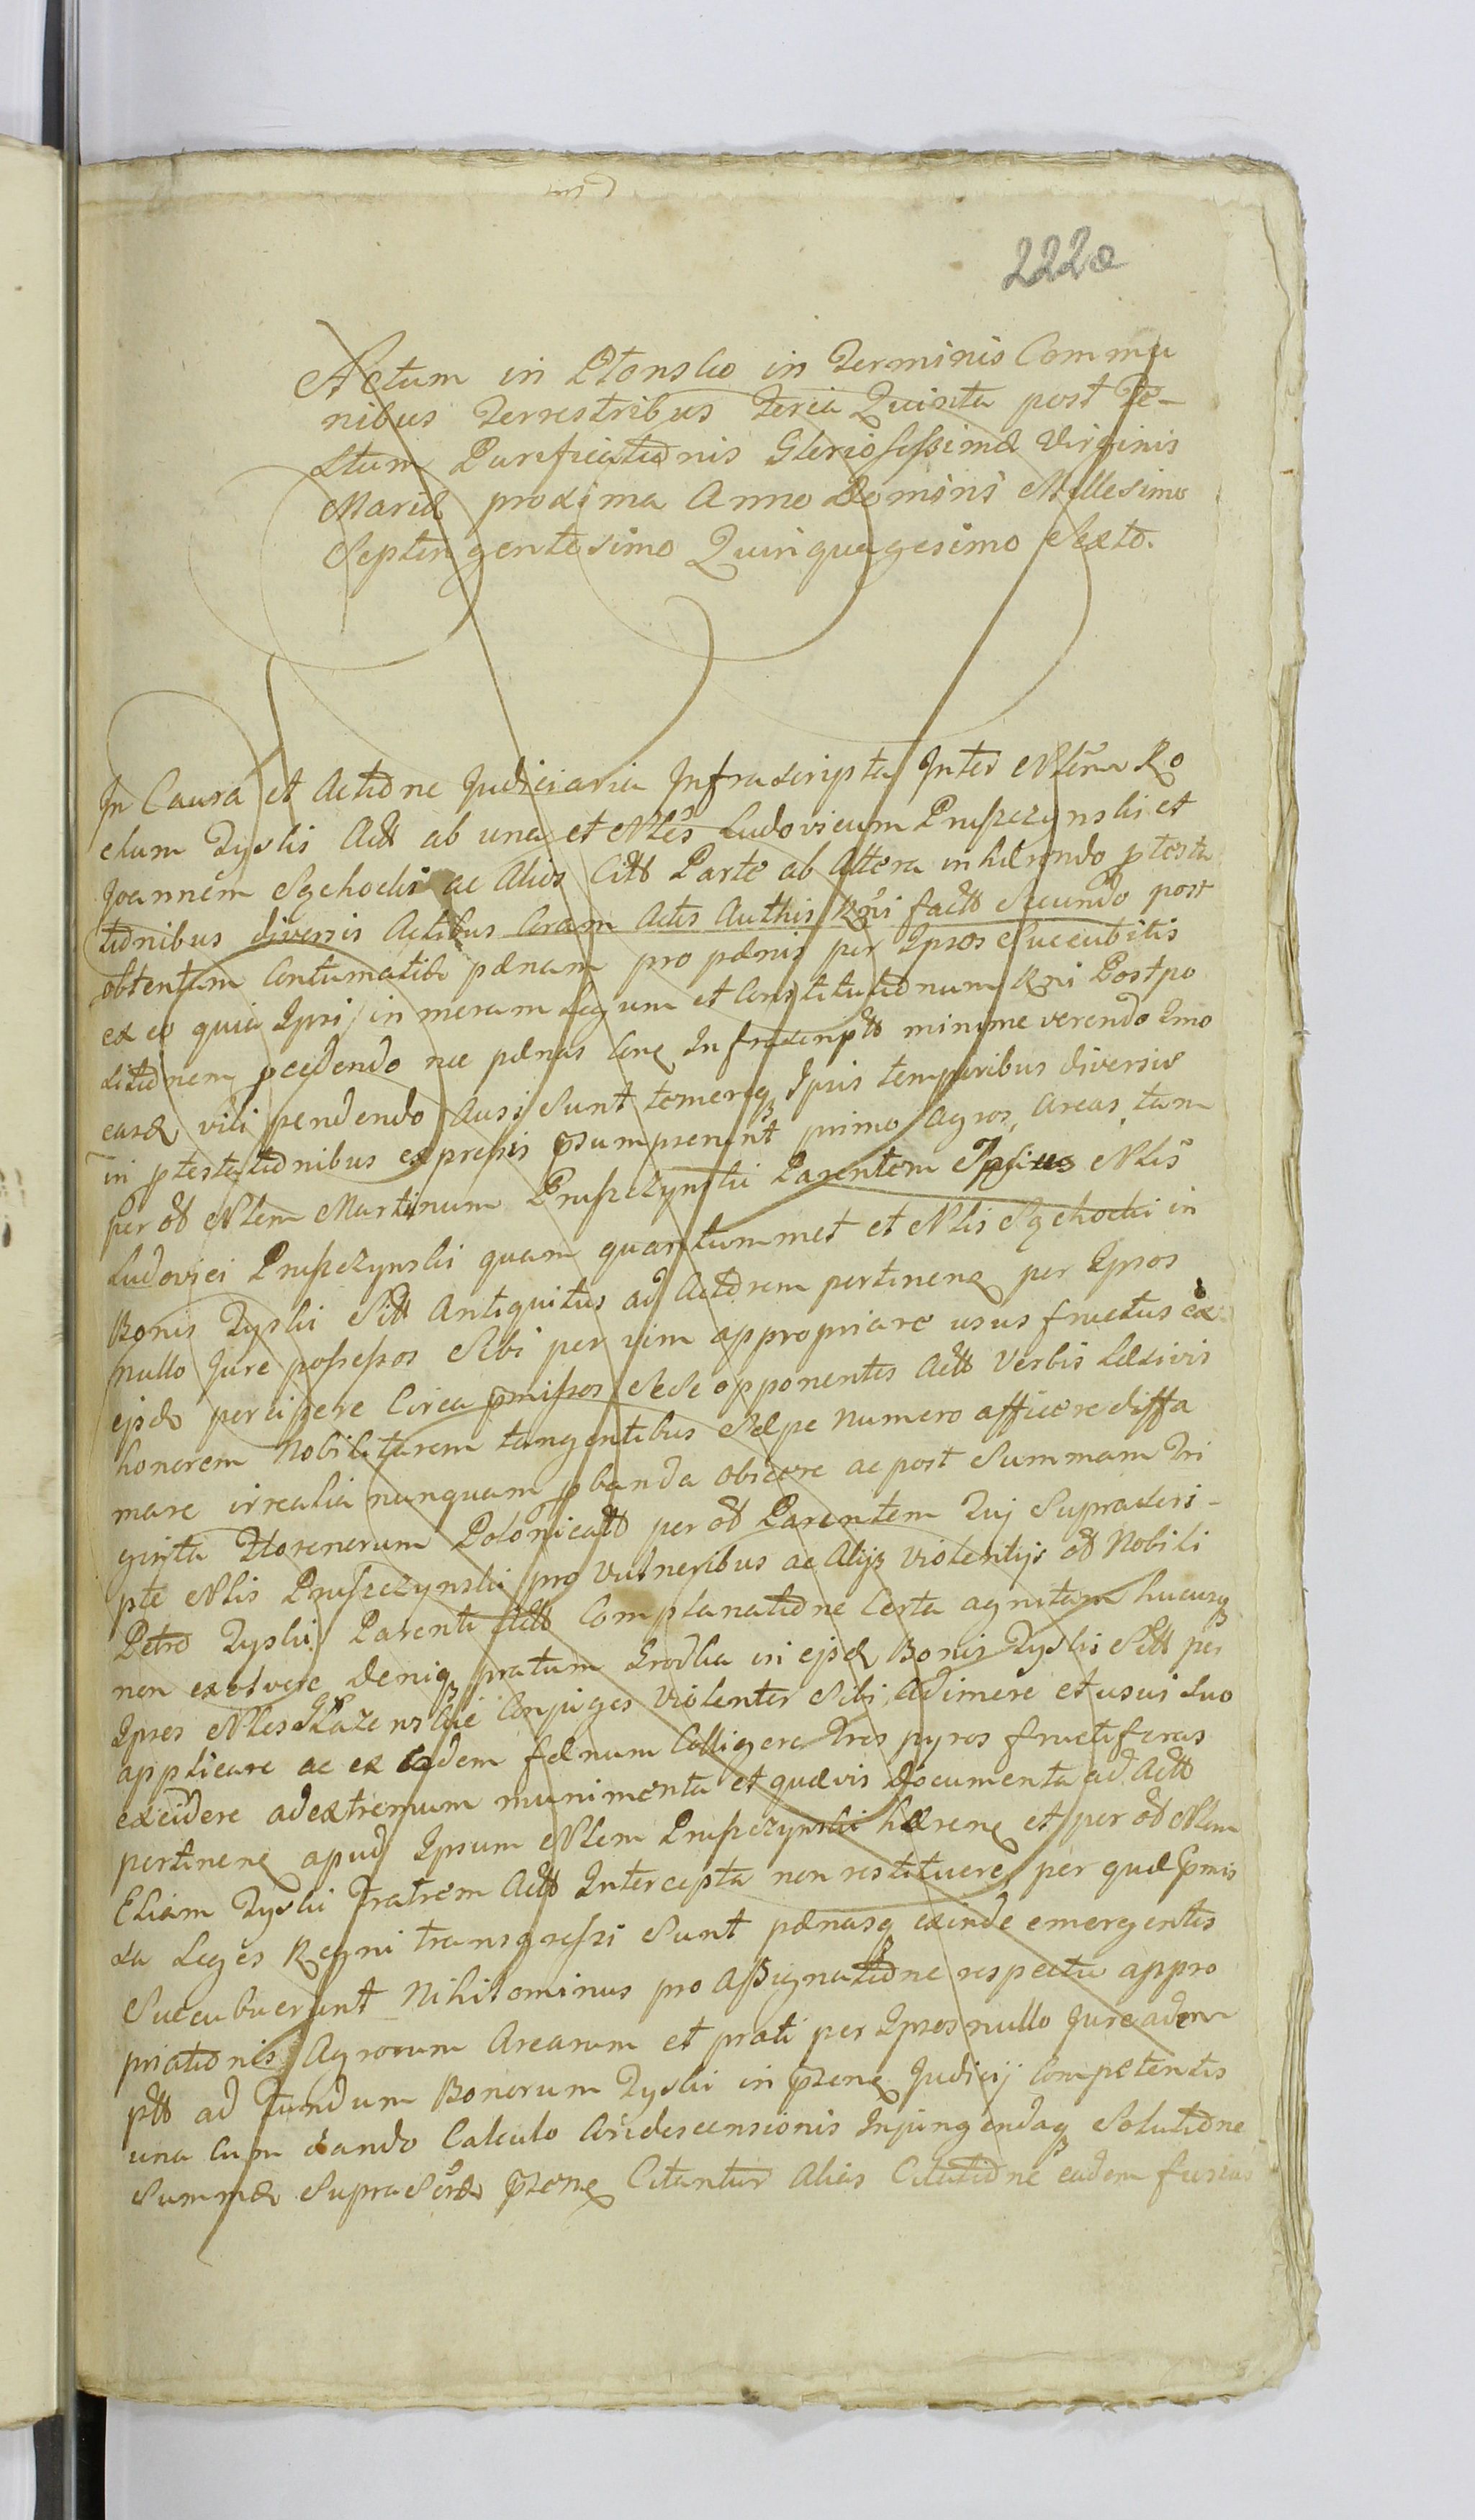 222a
Actum in Płonsko in Terminis Commu
nibus Terrestribus Feria Quinta post Fe-
stum Purificationis Gloriosissimæ Virginis
Mariæ proxima Anno Domini Millesimo
Septingentesimo Quinquagesimo Sexto.
In Causa et Actione Judiciaria Infrascripta Inter Nlem Ro
chum Zyski Act ab una et Nles Ludovicum Pruszczynski et
Joannem Sęchocki ac Alios Citt Parte ab Altera inhærendo ptesta
tionibus diversis Actibus Coram Actis Authis Rgni factt Secundo post
obtentam Contumatiæ pænam pro pænis per Ipsos Succubitis
ex eo quia Ipsi in meram Legum et Constitutionum Rgni Postpo
sitionem pcedendo nec pænas Conq Infrascriptt minime verendo Imo
easd vili pendendo Ausi Sunt temereq Ipsis temporibus diversis
in ptestationibus expressis psumpserunt primo Agros, Areas, tam
per od Nlem Martinum Pruszczynski Parentem Ipsius Nlis
Ludovici Pruszczynski quam quantummet et Nlis Sęchocki in
Bonis Zyski Sitt Antiquitus ad Actorem pertinenq per Ipsos
nullo Jure possessos Sibi per vim appropriare usus fructus ex
ejsd percipere Circa pmissos Sese opponentes Actt Verbis Læsivis
honorem Nobilitarem tangentibus Sæpe numero afficere diffa
mare irrealia nunquam pbanda obicere ac post Summam Tri
ginta Florenorum Polonicatt per od Parentem Tuj Suprascri-
pte Nlis Pruszczynski pro Vulneribus ac Alijs violentijs od Nobili
Petro Zyski Parenti Actt Complanatione Certa agnitam hucusq
non exolvere Deniq pratum Srodka in ejsd Bonis Zyski Sitt per
Ipsos Nles Conjuges Violenter Sibi Adimere et usui Suo
applicare ac ex eodem fænum Colligere Tres pyros fructiferas
excidere ad extremum munimenta et quævis Documenta ad Actt
pertinenq apud Ipsum Nlem Pruszczynski hærenq et per od Nlem
Eliam Zyski Fratrem Actt Intercepta non restituere per quæ pmis
sa Leges Regni transgressi Sunt pænasq exinde emergentes
Succubuerunt Nihilominus pro Assignatione respectu appro
priationis Agrorum Arearum et prati per Ipsos nullo Jure adem
ptt ad Fundum Bonorum Zyski in pzenq Judicij Competentis
una Cum dando Calculo Condescensionis Injungendaq Solutione
Summæ Supra Scræ pzonq Citantur Alias Citatione eadem fusius